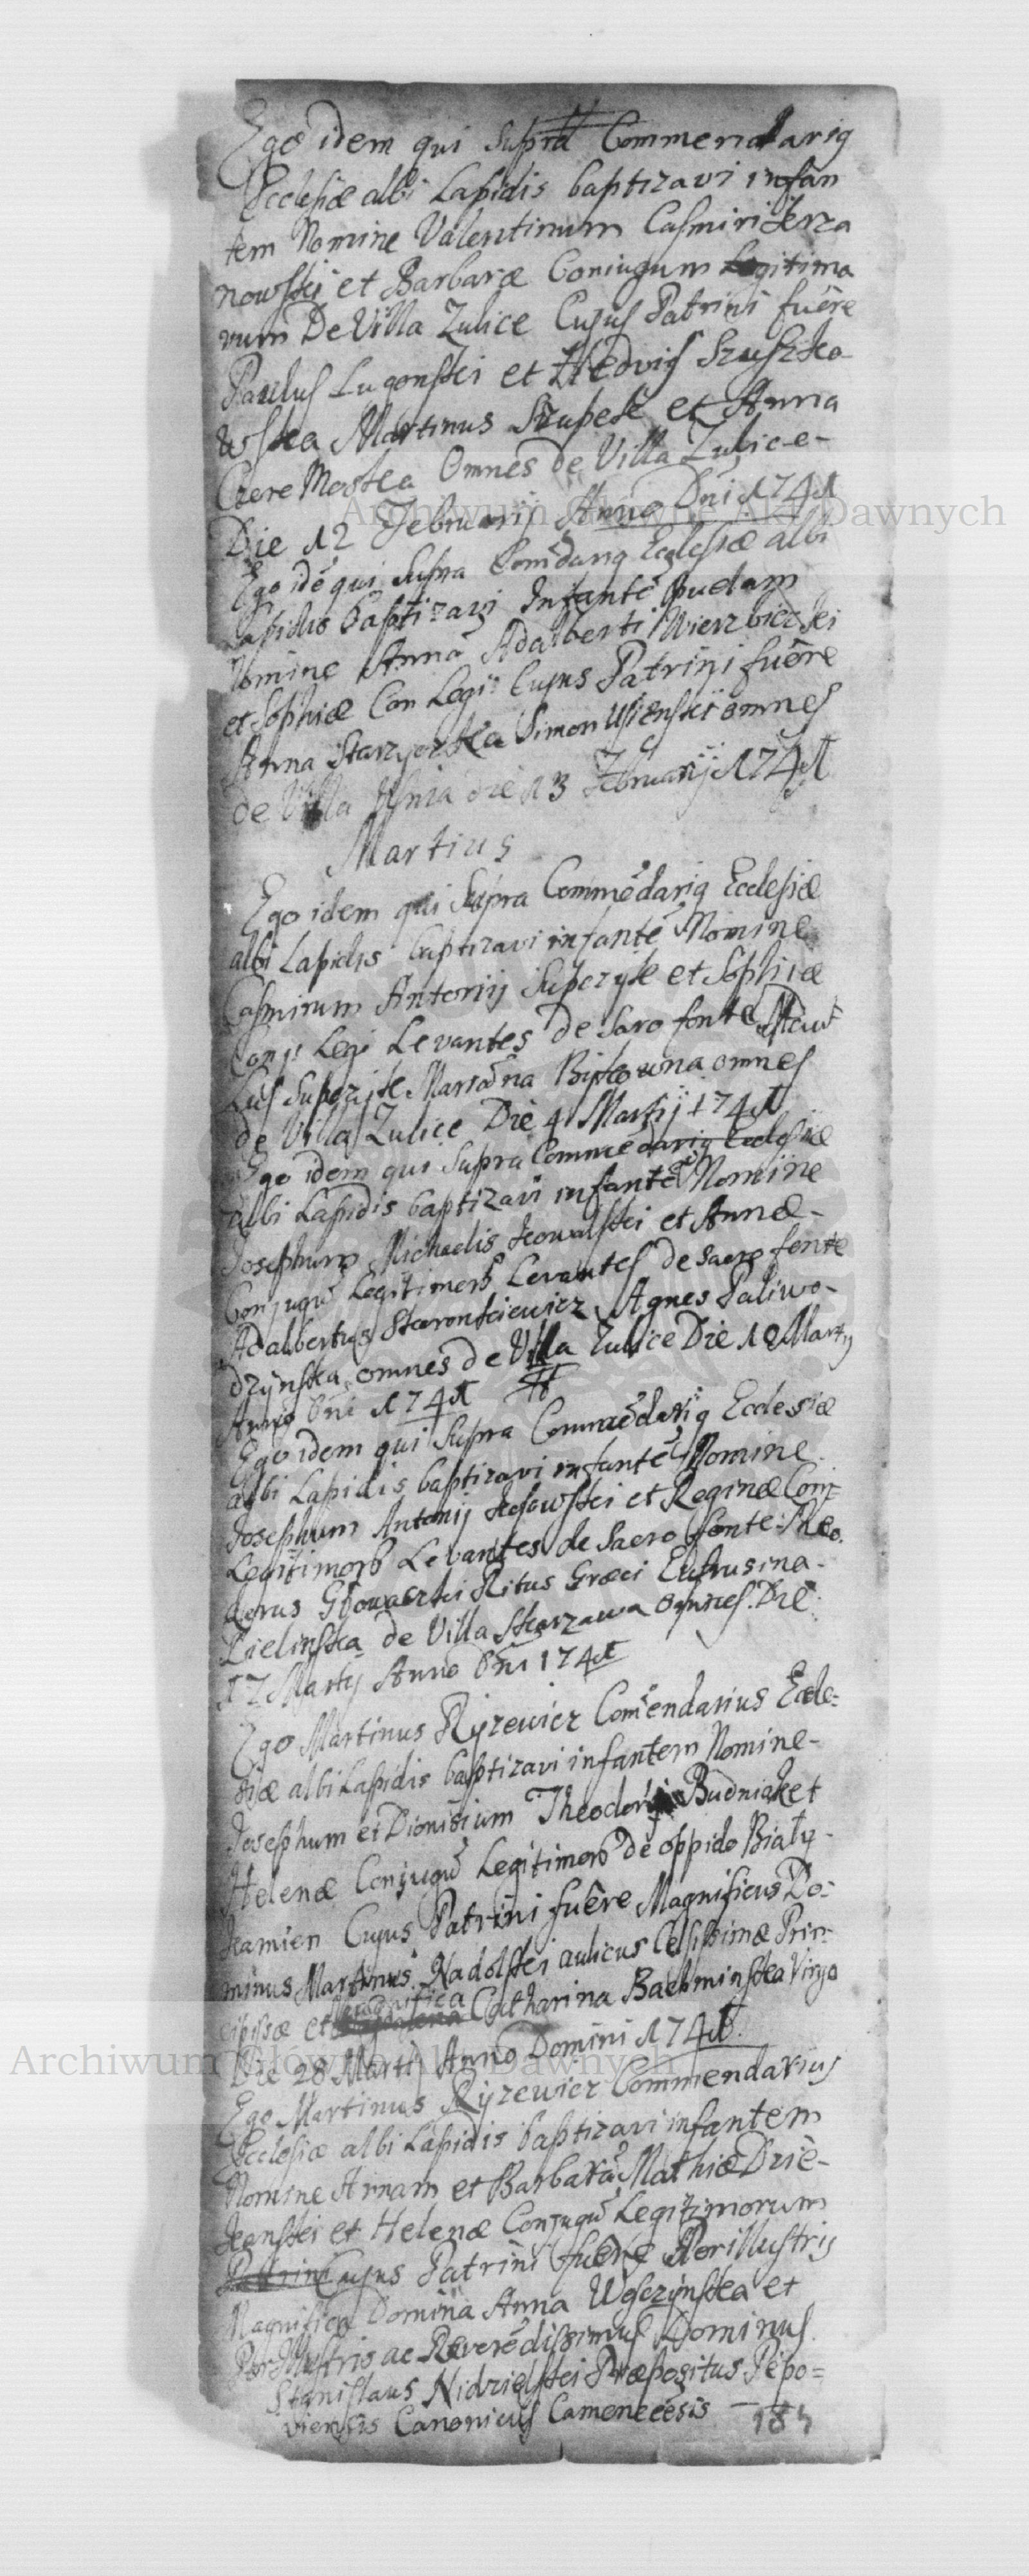 Ego idem qui supra Commendariq
Ecclesiæ albi Lapidis baptizavi infan
tem Nomine Valentinum Casmiri Jerza
nowski et Barbaræ Coniugum Legitimo
rum De Villa Zulice Cujus Patrini fuêre
Paulus Lugonski et Hedvis Szuszko-
wska Martinus Szupek et Anna
Czere Moska Omnes de Villa Zulic-e-
Die 12 Februarij Anno Dni 1741
Ego idē qui supra Comēdariq Ecclesiæ albi
Lapidis baptizavi Infantē quedam
Nomine Annā Adalberti Wierzbicki
et Sophiæ Con Legi: Cujus Patrini fuêre
Anna Starzyczka Simon Usienski omnes
de Villa Usnia die 13 Februarij 1741
Martius
Ego idem qui supra Commēdariq Ecclesiæ
albi Lapidis baptizavi infantē Nomine
Casmirum Antonij Supczyk et Sophiæ
Conj: Legi Levantes de Saro fonte
Lus Supczyk Marianna omnes
de Villa Zulice Die 4 Martij 1741
Ego idem qui supra Commēdariq Ecclesiæ
albi Lapidis baptizavi infantē Nomine
Josephum Michaelis Kowalski et Annæ-
Conjugū Legitimorʒ Levantes de Sacro fonte
Adalbertus Agnes Paliwo-
dzynska omnes de Villa Zulice Die 10 Martij
Anno Dni 1741
Ego idem qui supra Commēdariq Ecclesiæ
albi Lapidis baptizavi infantē Nomine
Josephum Antonij Kosowski et Reginæ Conj:
Legitimorʒ Levantes de Sacro fonte Theo.
dorus Głowacki Ritus Græci Eufrusina-
Zielinska de Villa Skwarzawa omnes. Die
17 Martij Anno Dni 1741
Ego Martinus Ryzewicz Comēndarius Eccle=
siæ albi Lapidis baptizavi infantem Nomine-
Josephum et Dionisium Theodori Budniak et
Helenæ Conjugū Legitimorʒ de oppido Biały-
kamien Cujus Patrini fuêre Magnificus Do=
minus Martinus Nadolski aulicus Celsissimæ Prin=
cipissæ et Magnifica Catharina Bachminska Virgo
Die 28 Martij Anno Domini 1741.
Ego Martinus Ryzewicz Commendarius
Ecclesiæ albi Lapidis baptizavi infantem
Nomine Annam et Barbarā Mathiæ Dzie-
konski et Helenæ Conjugū Legitimorum
Patrini Cujus Patrini fuêre Perillustris
Magnifica Domina Anna et
Perillustris ac Reverēdissimus Dominus
Stanislaus Nidzielski Præpositus Pepo=
viensis Canonicus Camenecēsis
184
Archiwum Główne Akt Dawnych
Archiwum Główne Akt Dawnych